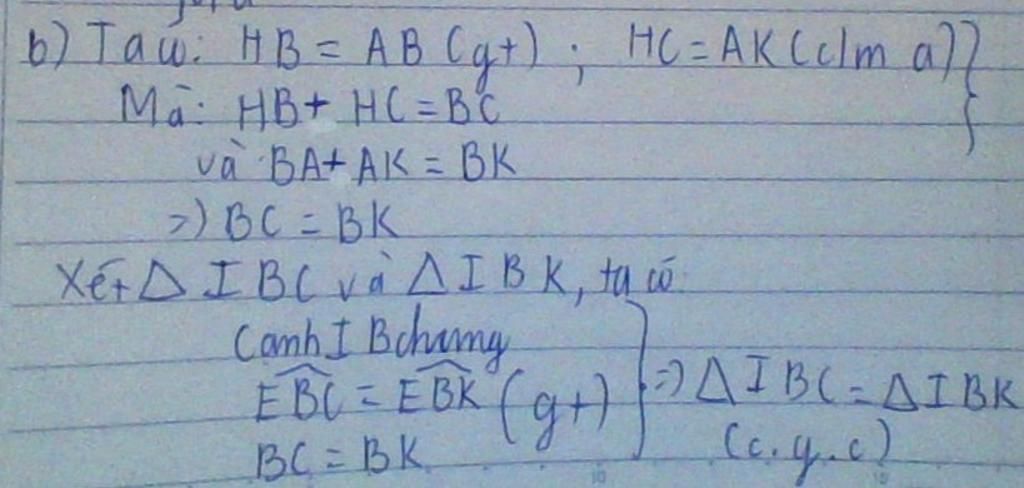 b) Ta có: HB = AB (gt) ; HC = AK (c/m a)}
Mà: HB + HC = BC
và BA + AK = BK
=) BC = BK
Xét Δ IBC và Δ IBK, ta có
Cạnh IB chung
EBC = EBK (gt)
BC = BK
=) Δ IBC = Δ IBK
(c.g.c)